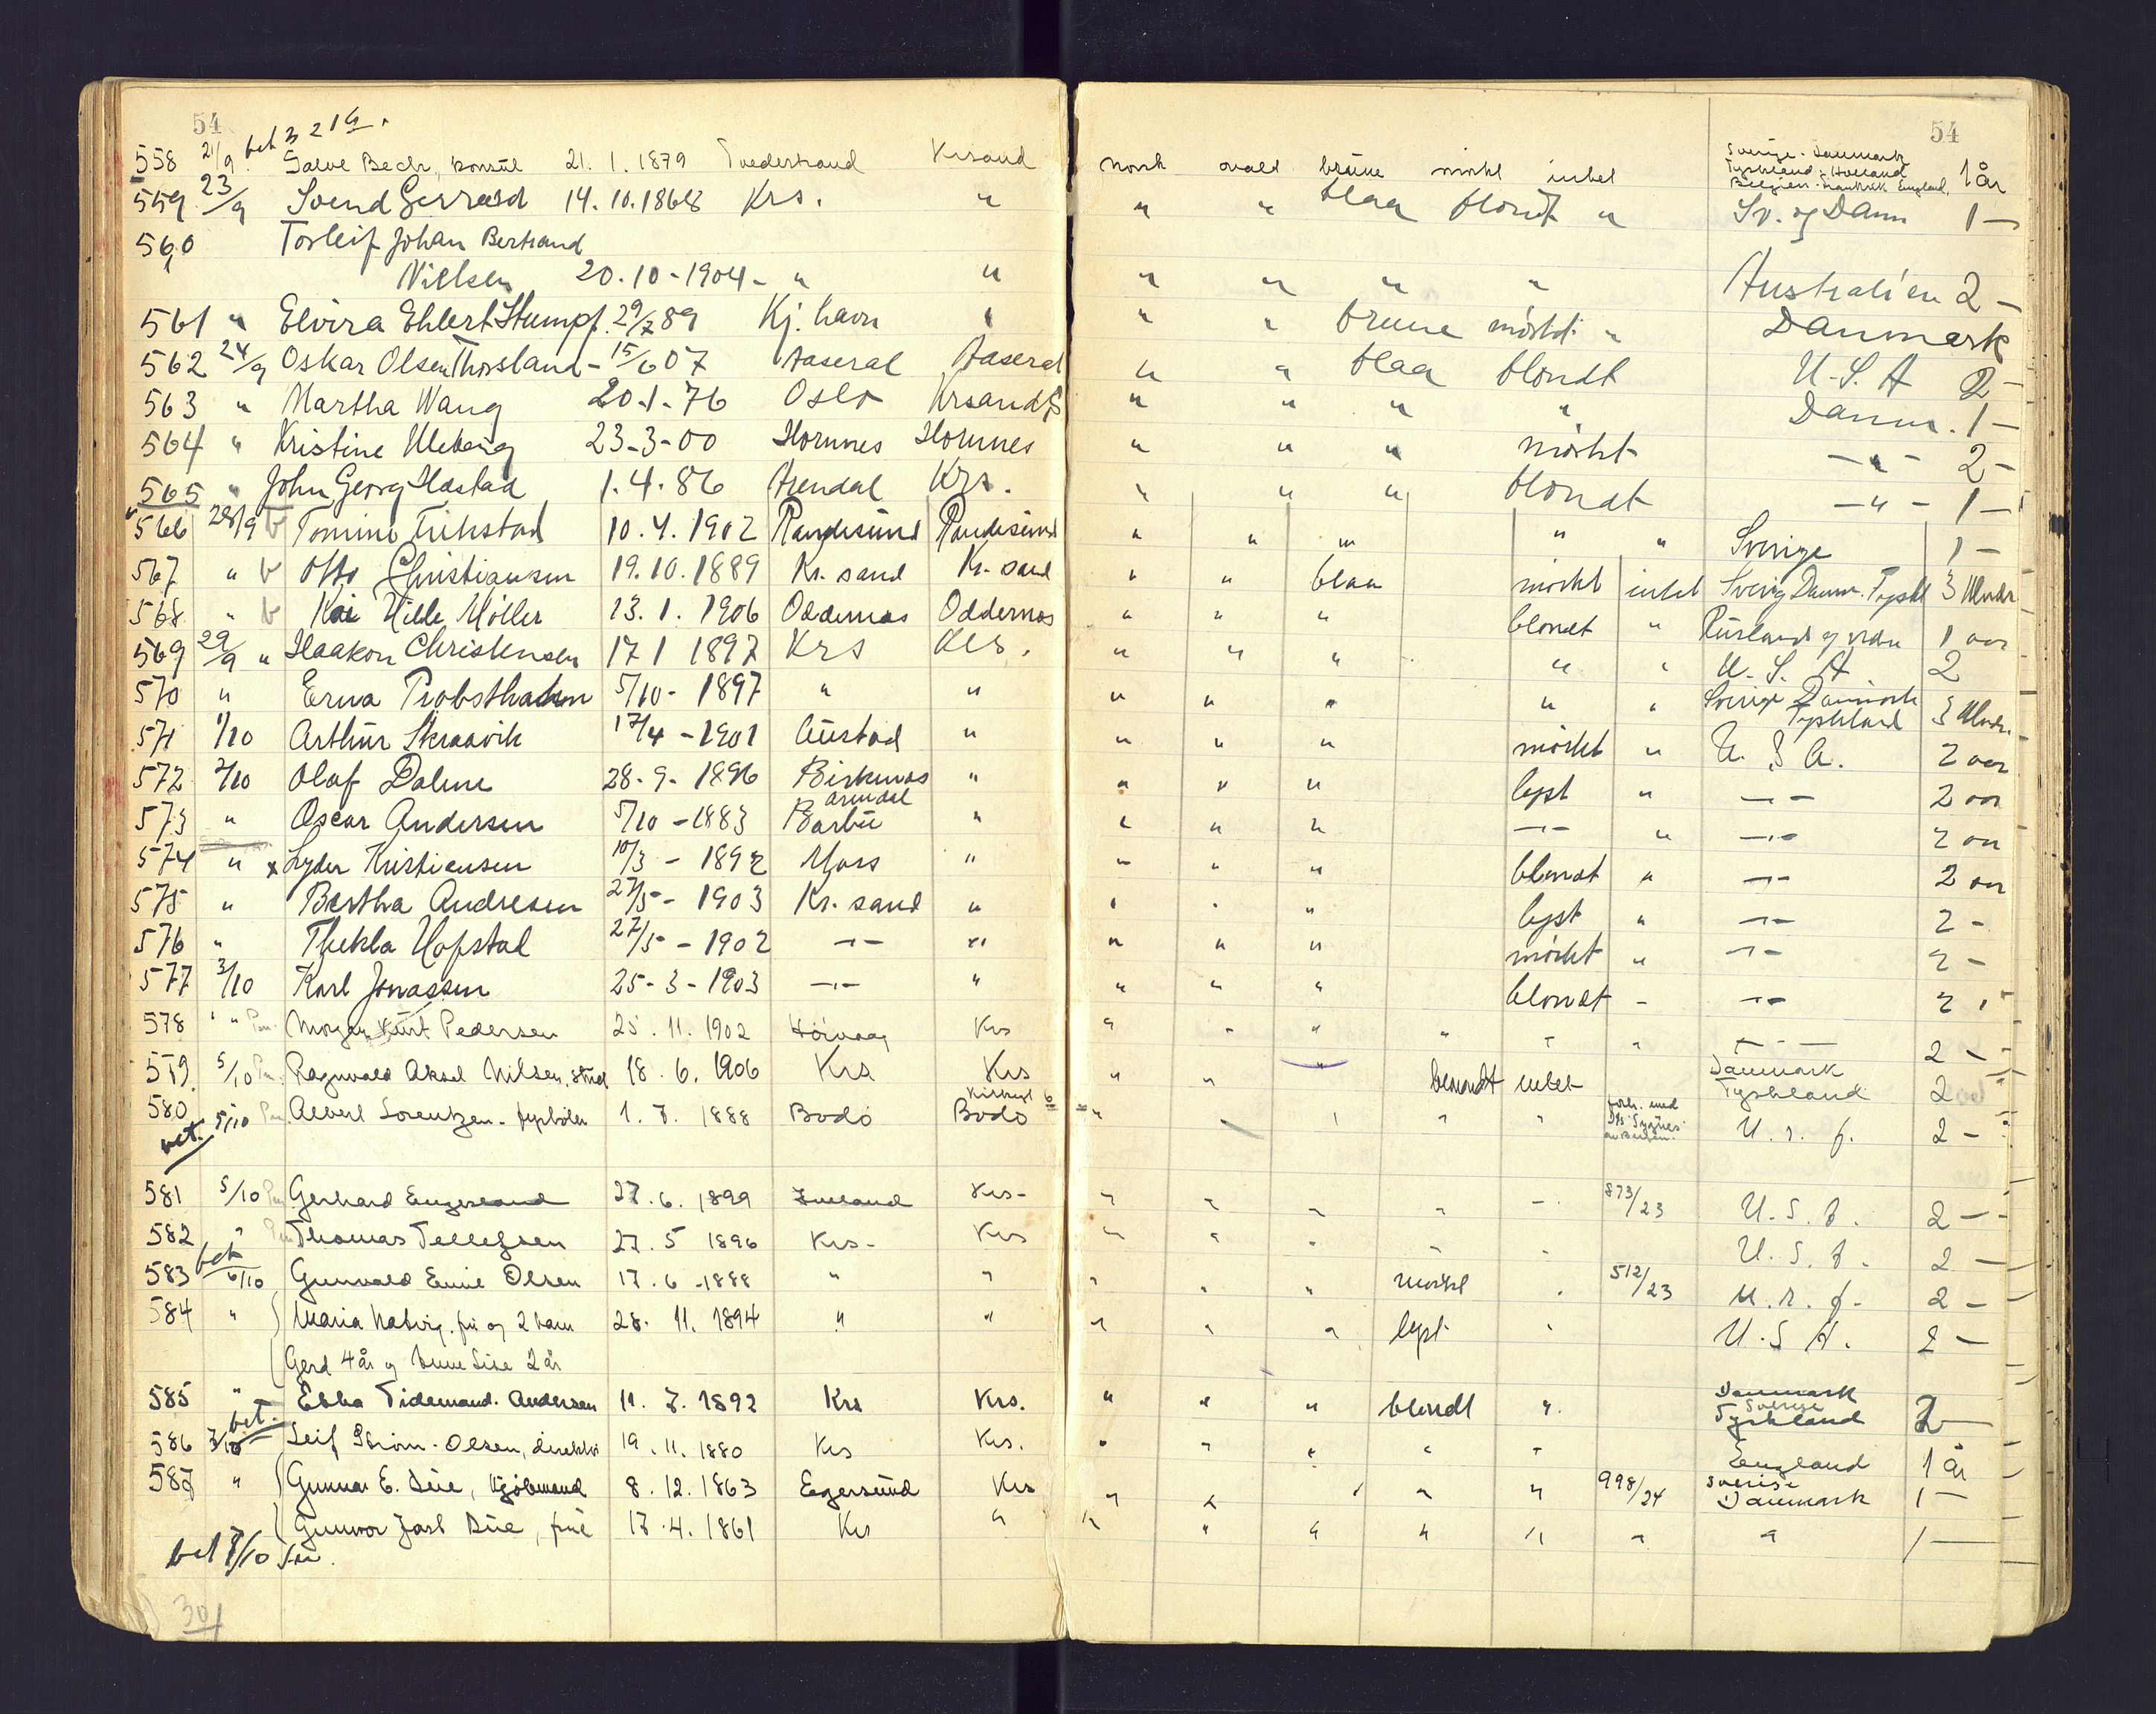 54 54
bet 3 21/9.
558 21/9. Salve Bech, konsul 21. 1. 1879 Tvedestrand Krsand norsk ovalt brune mörkt intet Sverige. Danmark Tyskland. Holland Belgien. Frankrik England, 1 år
559 23/9 Svend Gerrard 14. 10. 1868 Krs. " " " blaa blondt " Sv. og Danm 1 —
560 Torleif Johan Bertrand
Nielsen 20. 10 - 1904 - " " " " " " Australien 2 —
561 " Elvira Ehlert Stumpf. 29/7 89 Kj. havn " " " brune mörkt " Danmark
562 24/9 Oskar Olsen Thorsland - 15/6 07 Aaseral Aaseral " " blaa blondt U. S. A 2 -
563 " Martha Wang 20 - 1 - 76 Oslo Krsand S " " " " Danm. 1 —
564 " Kristine Uleberg 23 - 3 - 00 Hornnes Hornnes " " " mörkt — " - 2 -
565 " John Georg Hastad 1. 4. 86 Arendal Krs. " " " blondt — " - 1 —
566 28/9 b Tomine 10. 4. 1902 Randesund Randesund " " " " " Sverige 1 —
567 " b Otto Christiansen 19. 10. 1889 Kr. sand Kr. sand " " blaa mörkt intet Sverig Danm. Tyskl 3
568 " b Kai Hilde Möller 13. 1. 1906 Oddernes Oddernes " " " blondt " 1 aar
569 29/9 " Haakon Christensen 17 1 1897 Krs Krs. " " " " " U. S. A 2
570 " Erna Probsthahn 5/10 - 1897 " " " " " " " Sverige Danmark Tyskland 3
571 1/10 Arthur Skraavik 17/4 - 1901 Austad " " " " mörkt " U. S A. 2 aar
572 2/10 Olaf Dalene 28 - 9 - 1896 Birkenes " " " " lyst " — " — 2 aar
573 " Oscar Andersen 5/10 - 1883 Arendal Barbu " " " " — " — " — " — 2 aar
574 " x Lyder Kristiansen 10/3 - 1892 Moss " " " " blondt " — " — 2 aar
575 " Bertha Andresen 27/5 - 1903 Kr. sand " " " " lyst " — " — 2 -
576 " Thekla Hofstad 27/5 - 1902 — " — " " " " mörkt " — " — 2 —
577 3/10 Karl Jonassen 25 - 3 - 1903 — " — " " " " blondt - — " — 2
578 " " Kurt Pedersen 25. 11. 1902 Höivaag Krs " " " " " " — " — 2 —
579. 5/10 Ragnvald Aksel Nilsen, stud 18. 6. 1906 Krs Krs " " " blondt intet Danmark Tyskland 2
580 5/10 Albert Lorentzen - fyrböter 1. 7. 1888 Bodö Bodö " " " " forh. med U. S. A. 2 —
bet.
581 5/10 Gerhard Engesland 27. 6. 1899 Krs - " " " " - 873/23 U. S. A. 2 —
582 " Thomas Tellefsen 27. 5 1896 Krs - Krs " " " " " U. S. A. 2 —
bet
583 6/10 Gunvald Emil Olsen 17. 6 - 1888 " " " " " mörkt " 512/23 U. S. A. 2 —
584 " Maria Natvig. fru og 2 barn 28. 11. 1894 " " " " " lyst " U. S A. 2 —
Gerd 4 år og Anne Lise 2 år
585 " Ebba Tidemand. Andersen 11. 7. 1892 Krs Krs. " " " blondt " Danmark Sverige Tyskland 2 —
bet.
586 7/10 Leif Ström - Olsen, direktör 19. 11. 1880 Krs Krs. " " " " " England 1 år
587 " Gunnar E. Due, kjöbmand 8. 12. 1863 Egersund Krs " " " " " 998/24 Sverige Danmark 1 —
Gunvor Jarl Due, frue 17. 4. 1861 Krs " " " " " " " " 1 —
bet 7/10
301